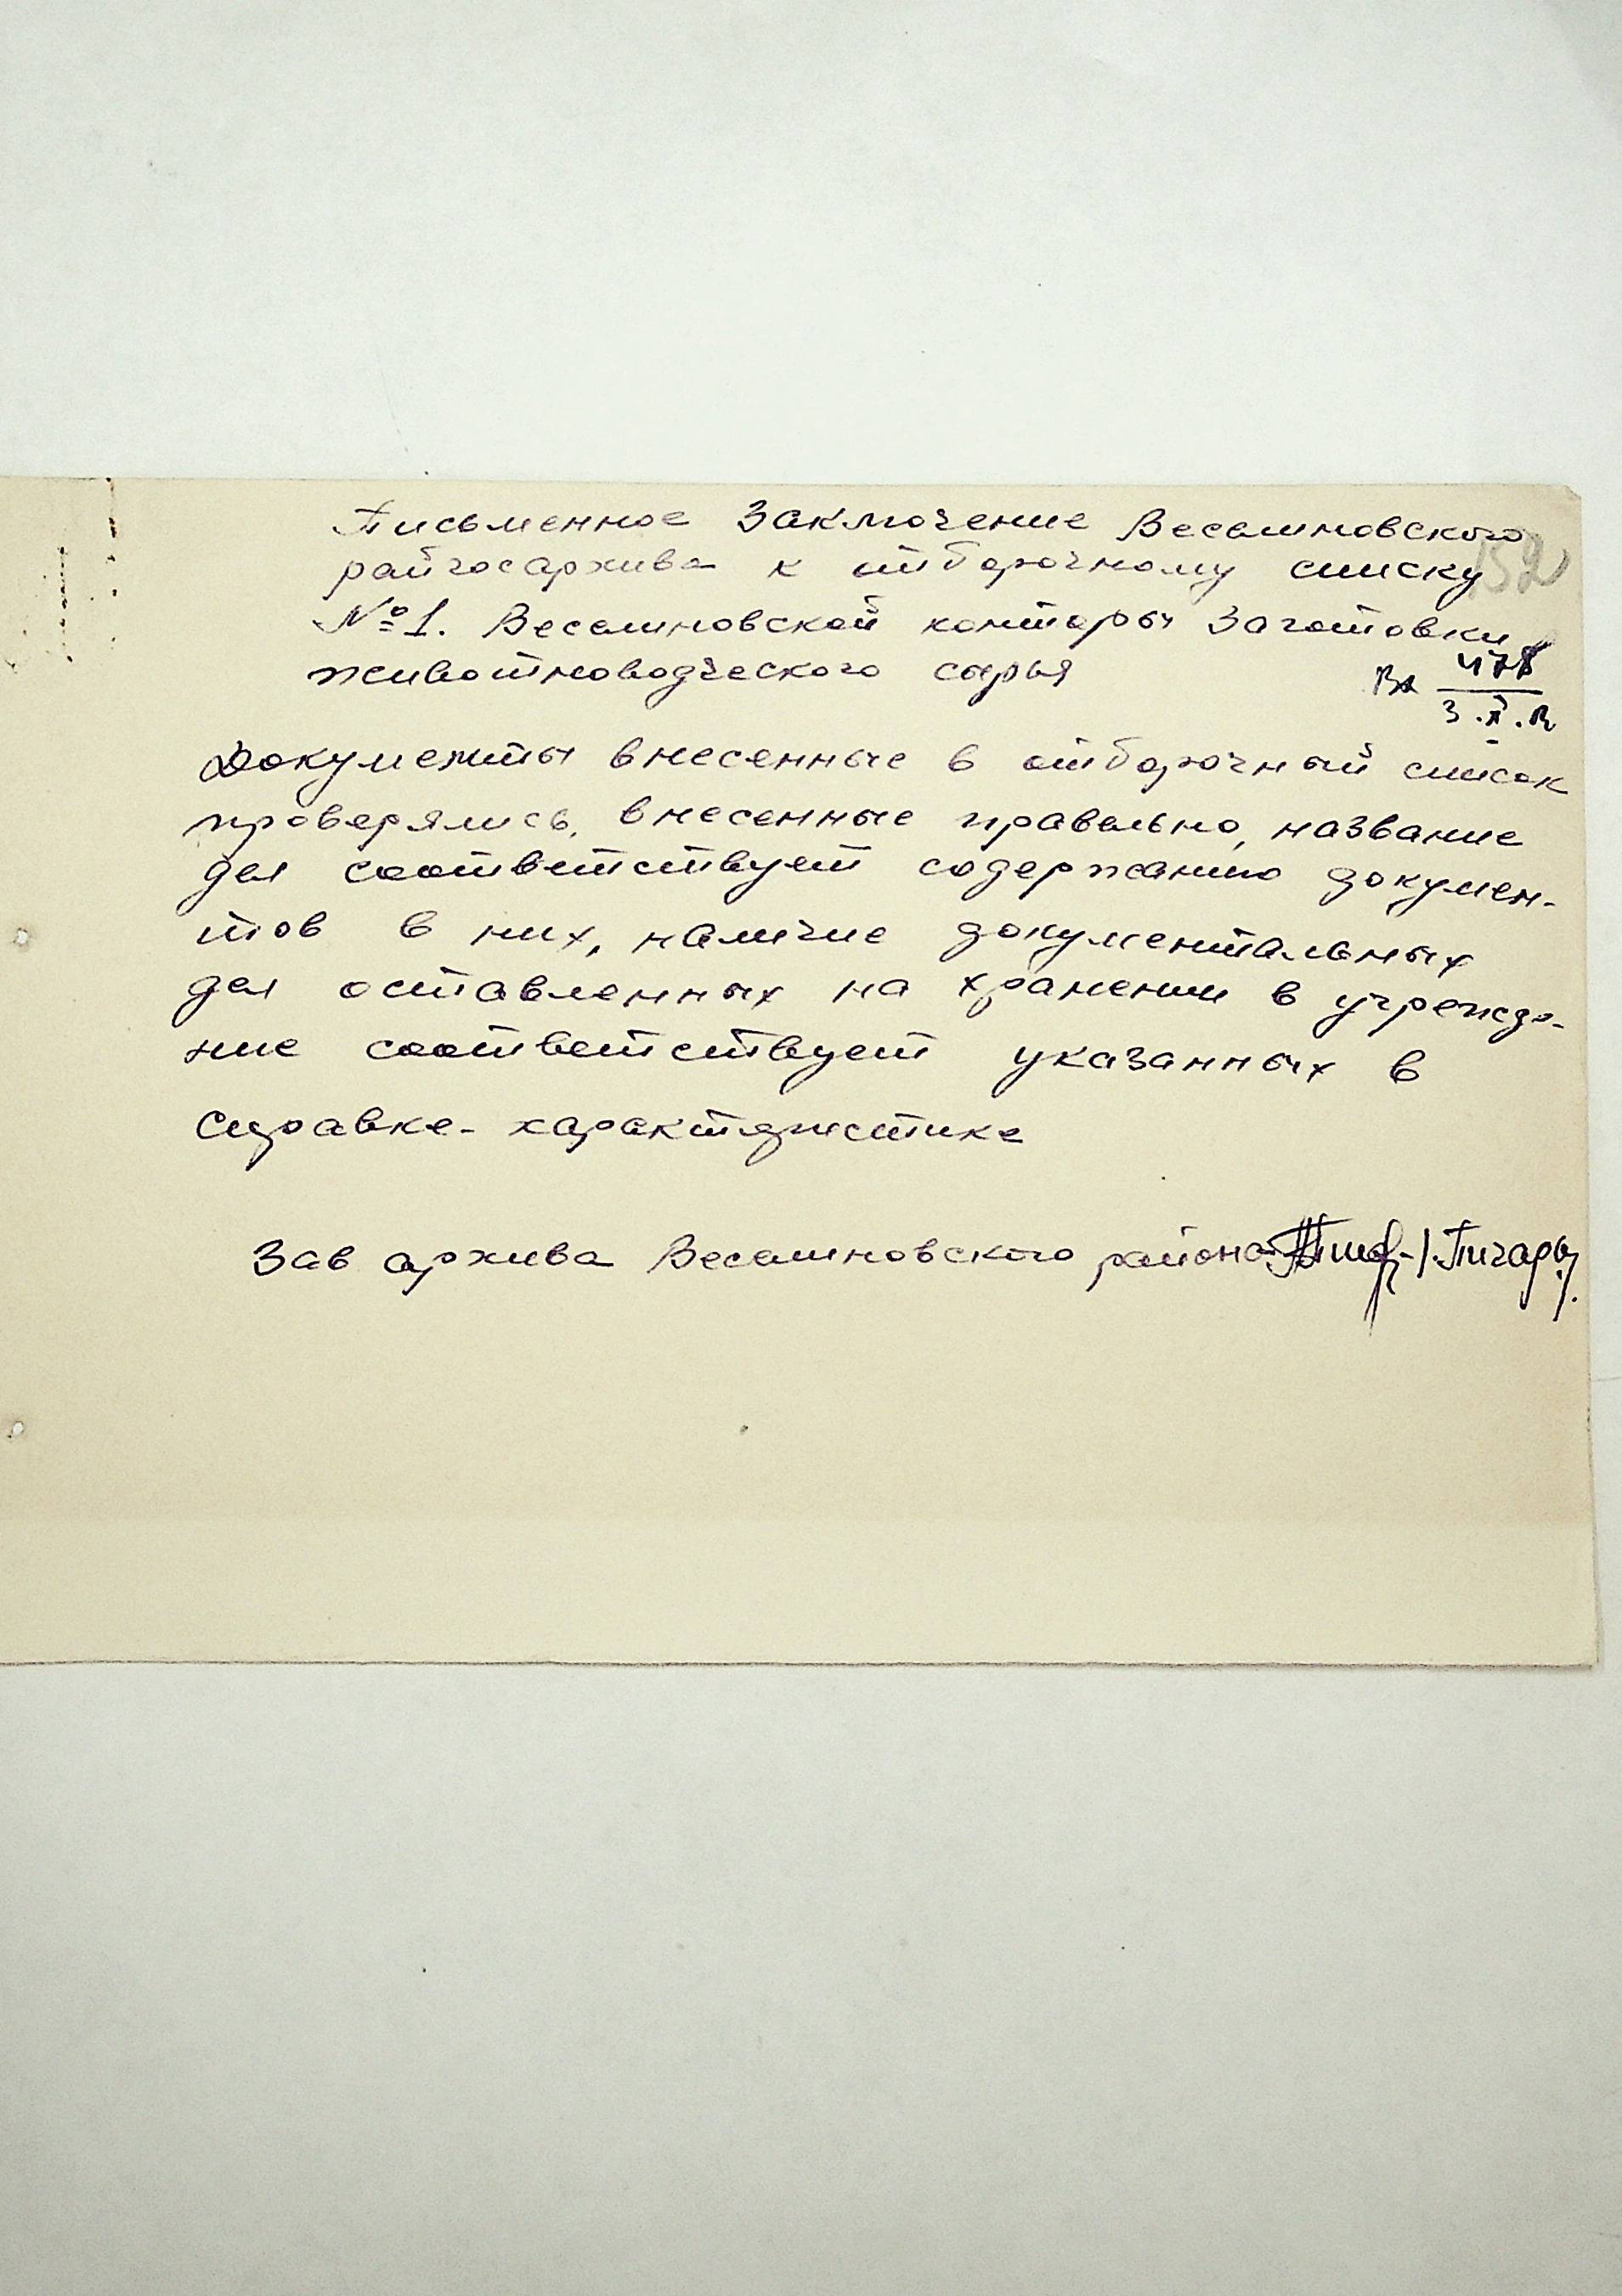 Письменное заключение Веселиновского
райгосархива к отборочному списку
152
№1. Веселиновской конторы заготовки
животноводческого сырья
Вх 478
3.X.
Документы внесенные в отборочный список
проверялись, внесенные правельно, название
дел соответствует содержанию докумен-
тов в них, наличие документальных
дел оставленных на хранении в учрежде-
ние соответствует указанных в
справке-характеристике
Зав архива Веселиновского района /Пичару/.